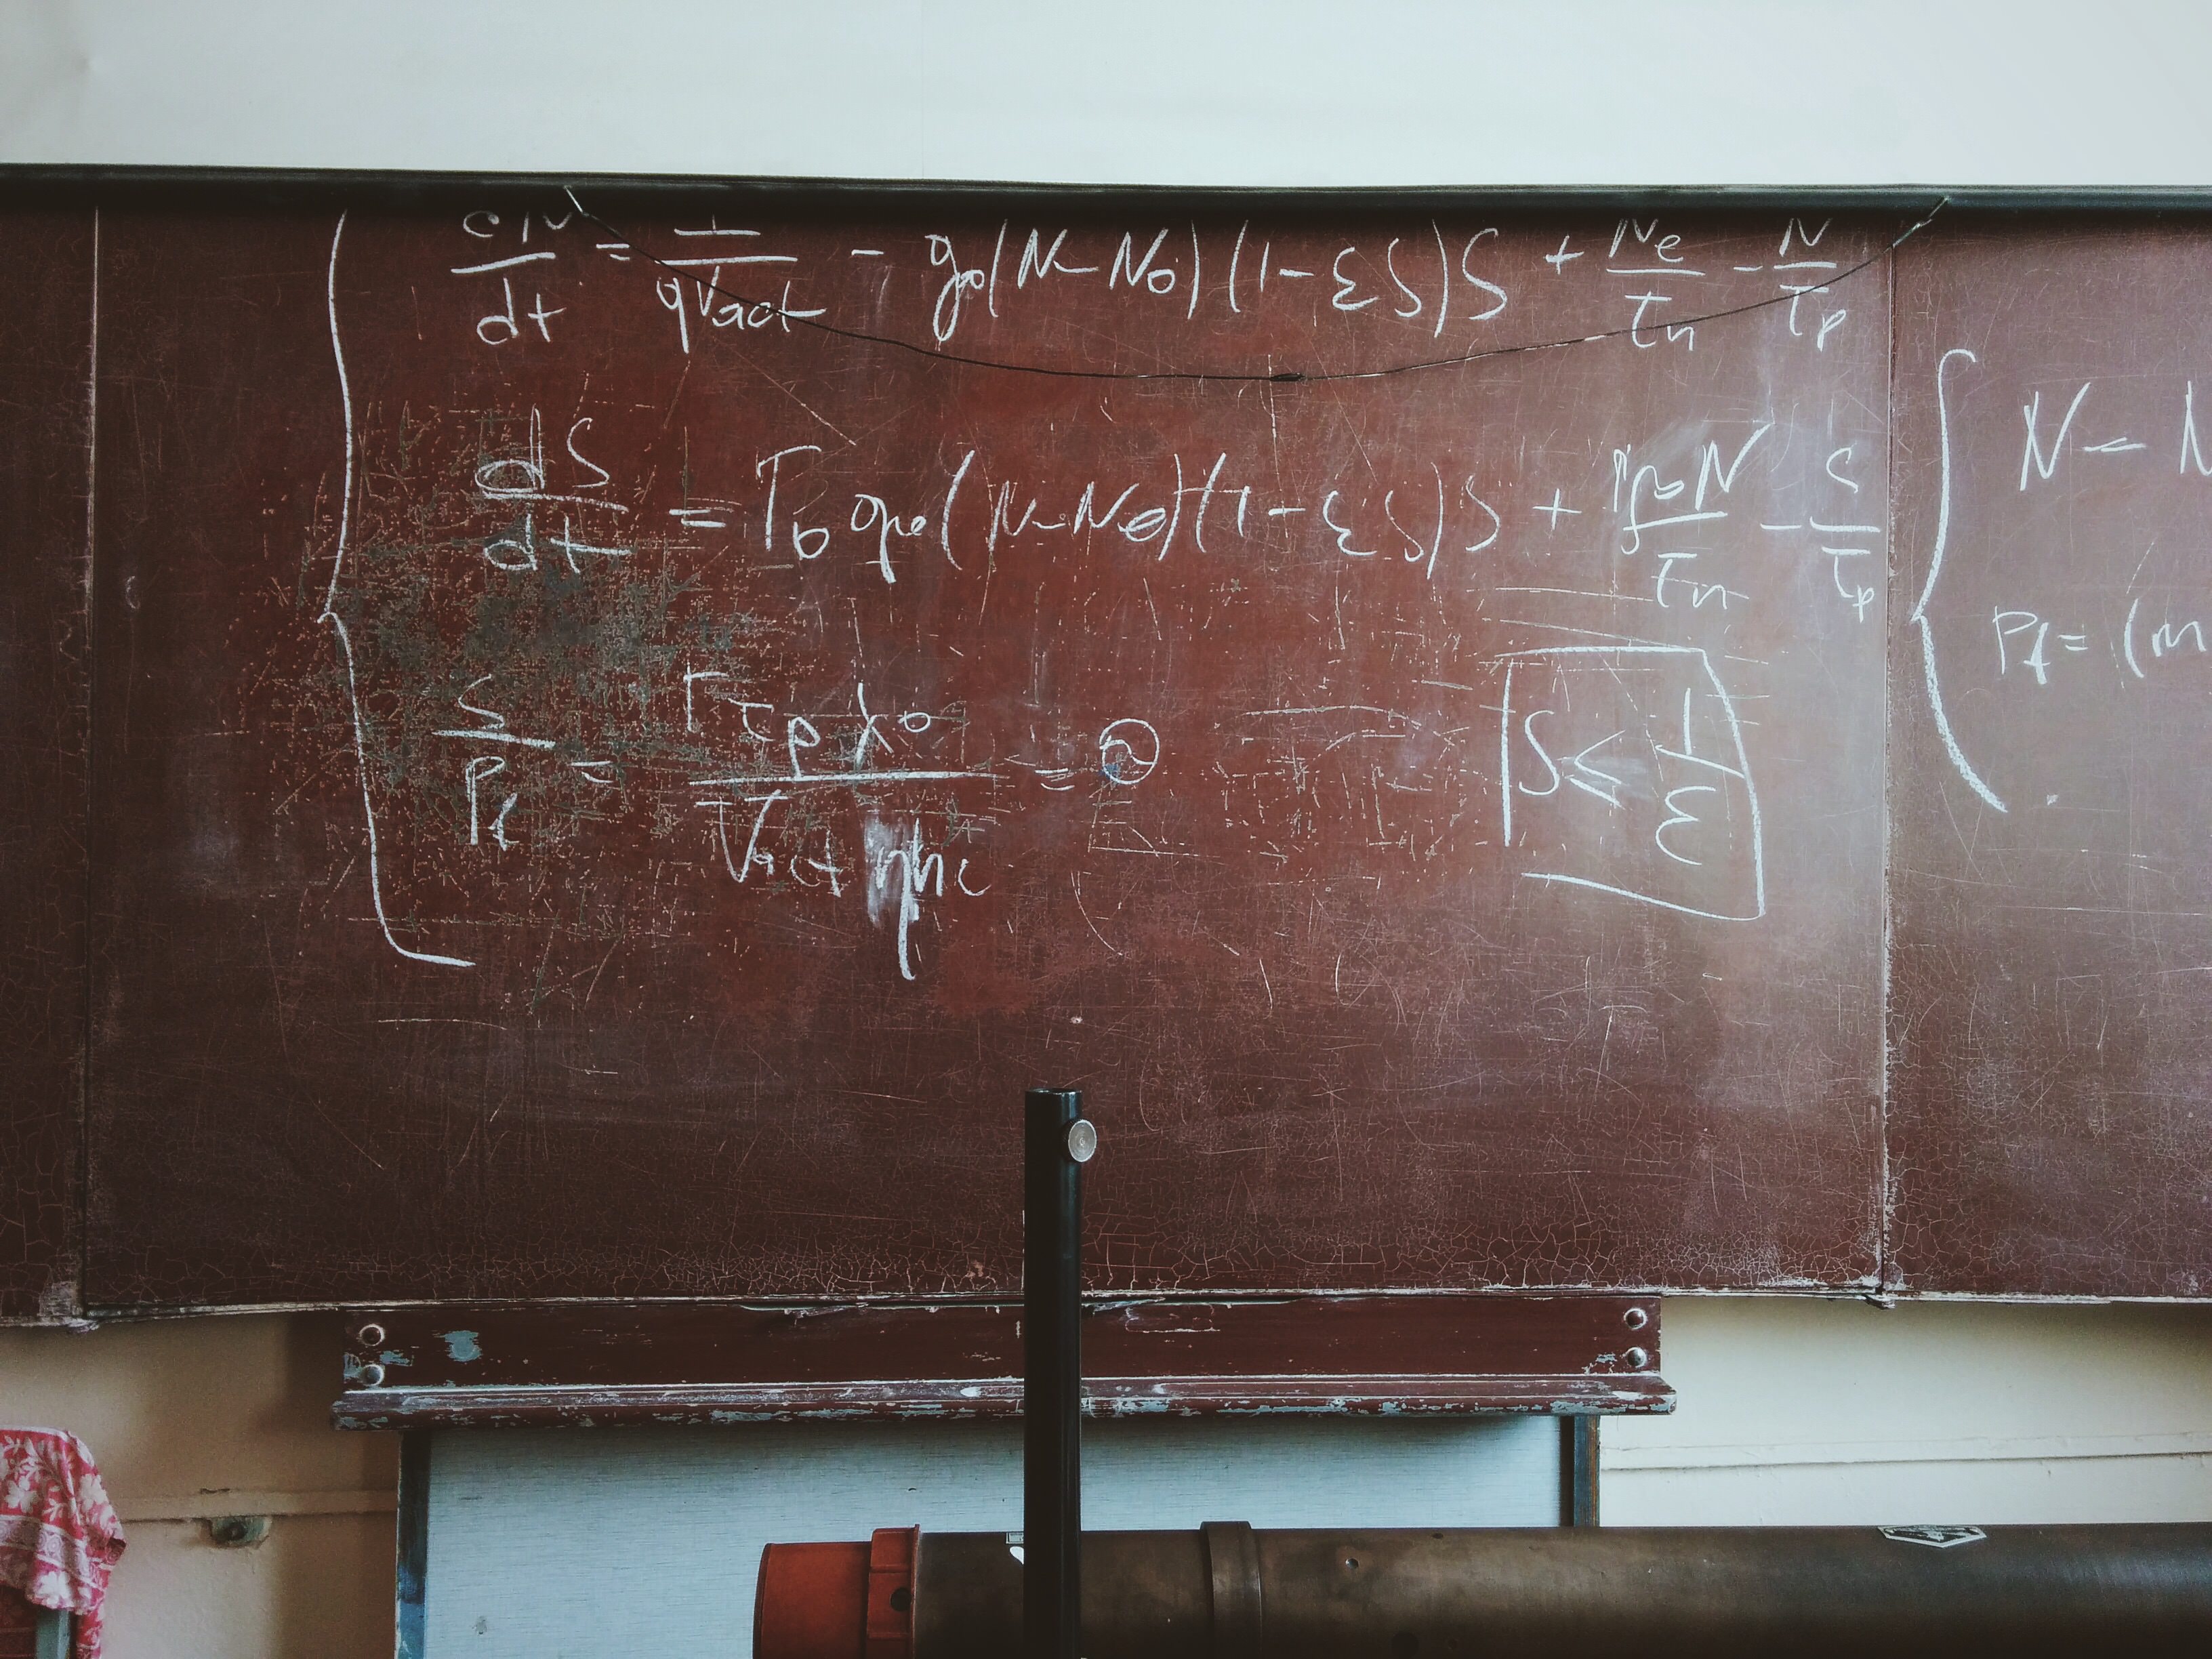 dN/dt = I/(qVact) - g₀(N-N₀)(1-εS)S + Ne/τn - N/τp
dS/dt = Γ₀ g₀(N-N₀)(1-εS)S + N/τn - S/τp
S/Pf = Γτpλ₀/(Vact ηhc) =
S ≤ 1/ε
N - N
Pf = (m